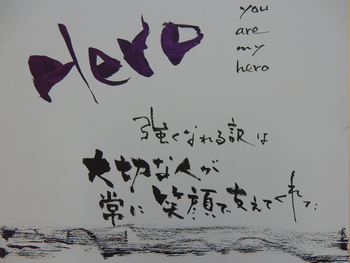 Hero
you
are
my
hero
強くなれる訳は
大切な人が
常に笑顔で支えてくれて.